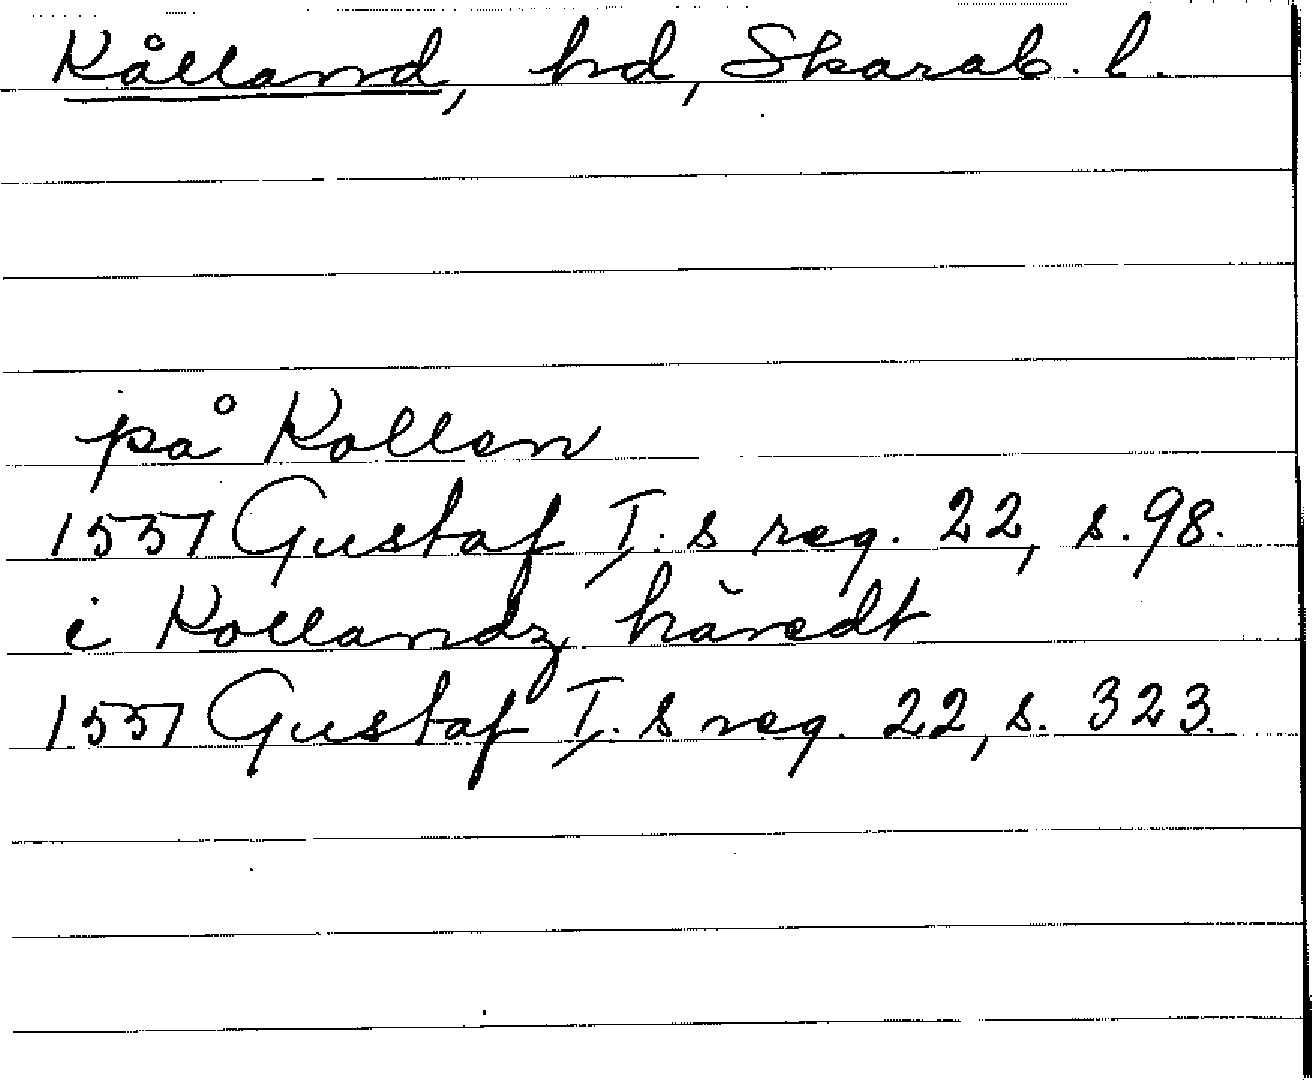 Kålland, hd, Skarab. l.
på Kollen
1551 Gustaf I. s reg. 22, s. 98.
i Kollandz häredt
1551 Gustaf I. s reg. 22, s. 323.